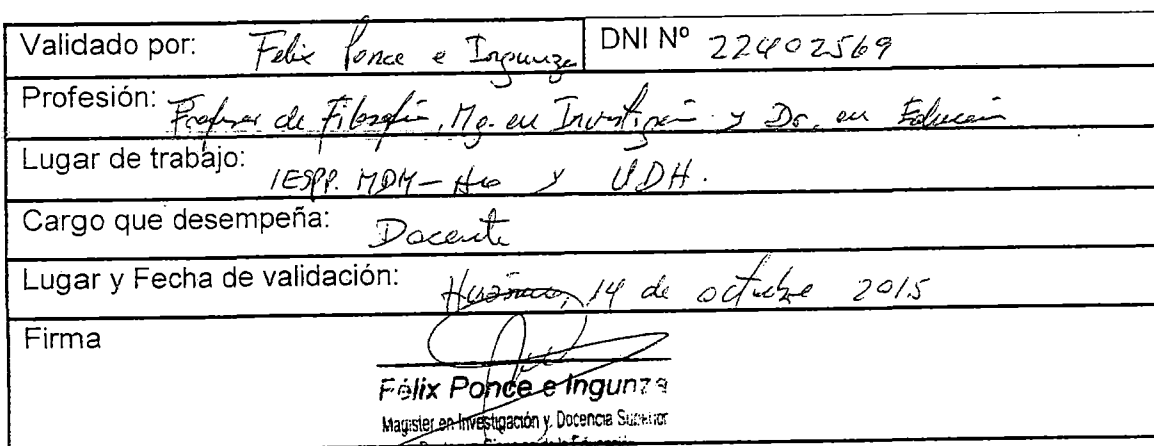 Validado por: Felix Ponce e Ingunza DNI Nº 22402569
Profesión: Profesor de Filosofía, Mg. en Investigación y Dr. en Educación
Lugar de trabajo: IESPP. MDM-Hco y UDH.
Cargo que desempeña: Docente
Lugar y Fecha de validación: Huánuco, 14 de octubre 2015
Firma
Félix Ponce e Ingunza
Magister en Investigación y Docencia Superior